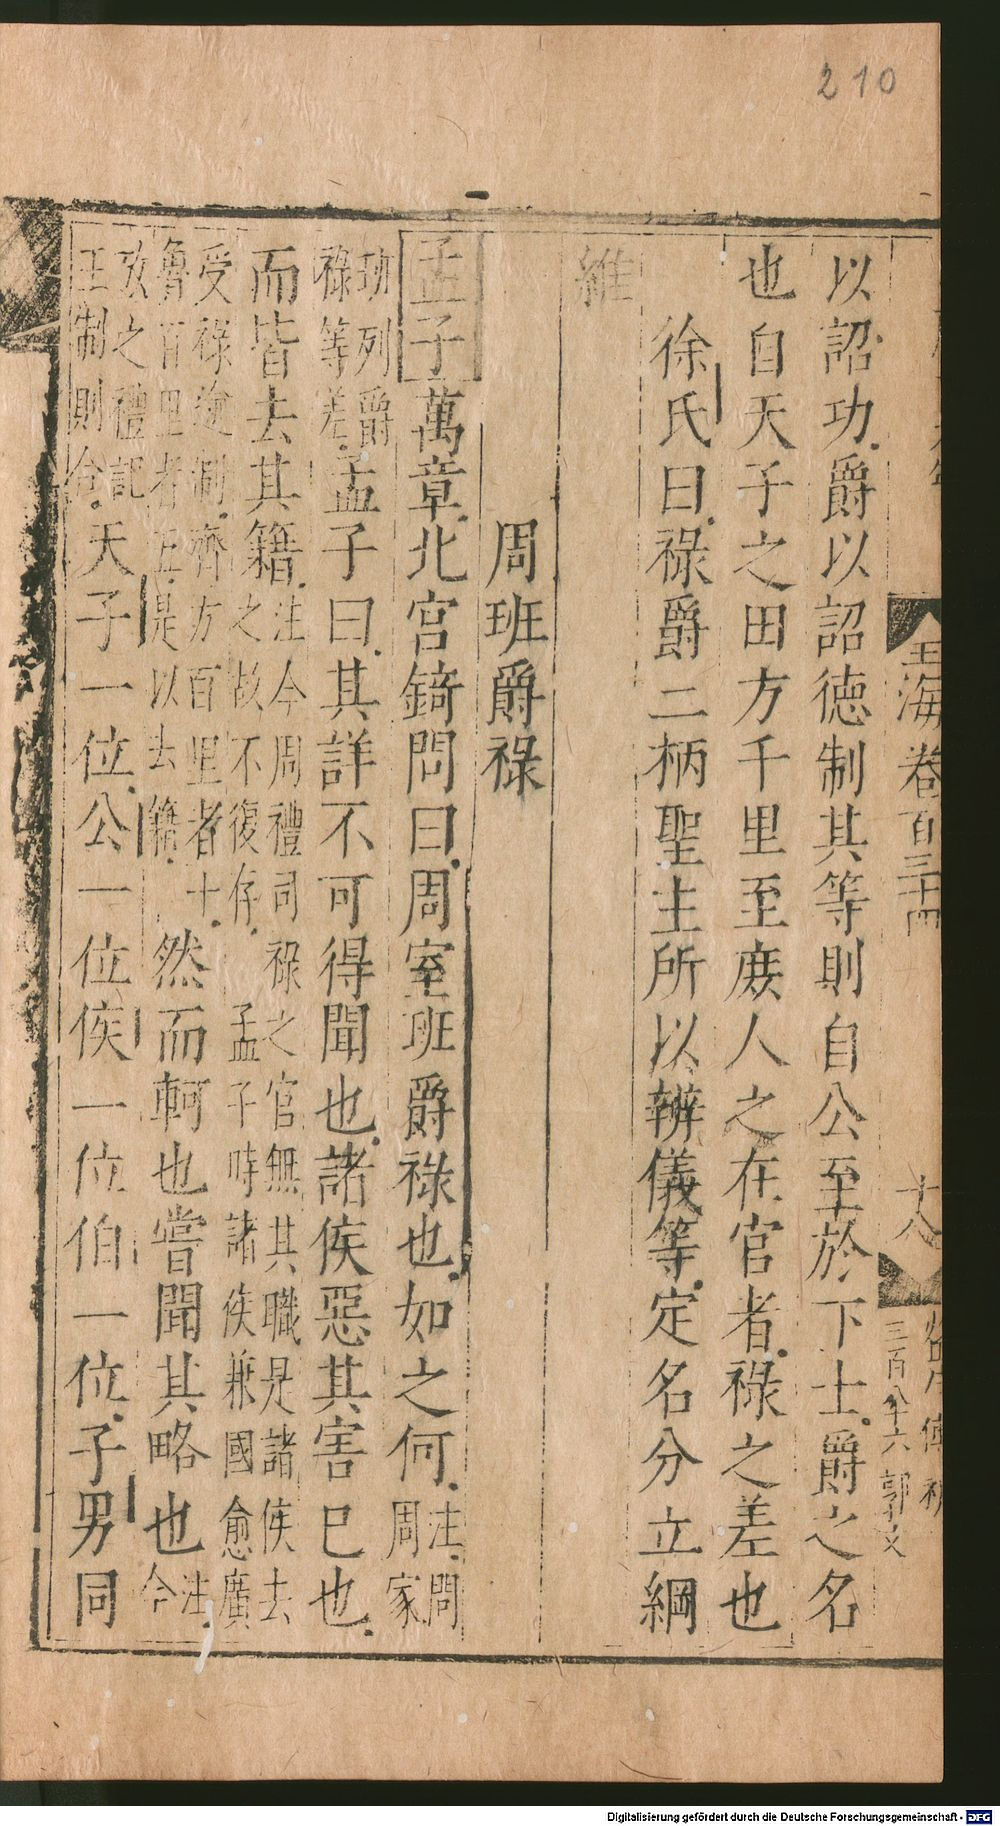 210
玉海卷百三十四
十八
三百八十六 郭文
以詔功爵以詔徳制其等則自公至於下士爵之名
也自天子之田方千里至庶人之在官者祿之差也
徐氏曰祿爵二柄聖主所以辨儀等定名分立綱
維
周班爵祿
孟子萬章北宮錡問曰周室班爵祿也如之何注問
周家
班列爵
祿等差孟子曰其詳不可得聞也諸侯惡其害已也
而皆去其籍注今周禮司祿之官無其職是諸侯去
之故不復存孟子時諸侯兼國愈廣
受祿逾制齊方百里者十
魯百里者五是以去籍然而軻也嘗聞其略也注
今
攷之禮記
王制則合天子一位公一位侯一位伯一位子男同
Digitalisierung gefördert durch die Deutsche Forschungsgemeinschaft - DFG